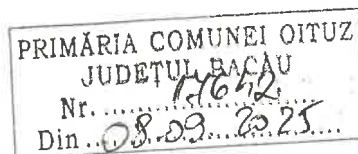 PRIMĂRIA COMUNEI OITUZ
JUDEŢUL BACĂU
Nr. 17642
Din 08.09. 2025